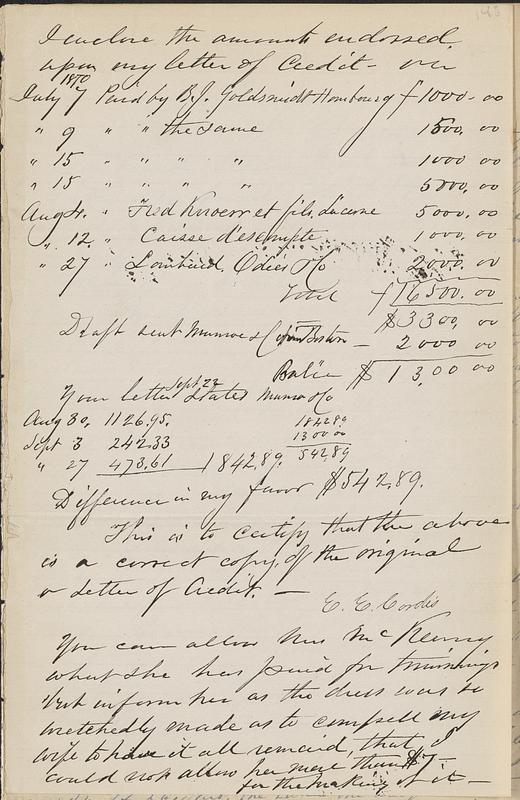 I enclose the amounts endorsed
upon my letter of Credit - viz
1870
July 7 Paid by B.J. Goldsmidt Hombourg f 1000 - 00
" 9 " " the same 1500, 00
" 15 " " " " 1000 00
" 15 " " " " 5000, 00
Aug 4. " Fred Knoerr et fils, Lucerne 5000, 00
" 12. " Caisse d'escompte 1000, 00
" 27 " Lombard, Odier & Co 2000. 00
Total f 16500. 00
$3300, 00
Draft sent Munroe & Co Boston - 2000 00
Balce $ 1300 00
Your letter Sept. 22 states Munroe & Co
Aug 30. 1126.95. 184289
Sept 3 242.33 1300 00
" 27 473.61 1842,89. 542,89
Difference in my favor $542,89.
This is to certify that the above
is a correct copy, of the original
a Letter of Credit. -
E. E. Cordis
You can allow Mrs McKenny
what she has paid for trimmings
but inform her as the dress was so
wretchedly made as to compell my
wife to have it all remaid, that I
could not allow her more than $7-
for the making of it -